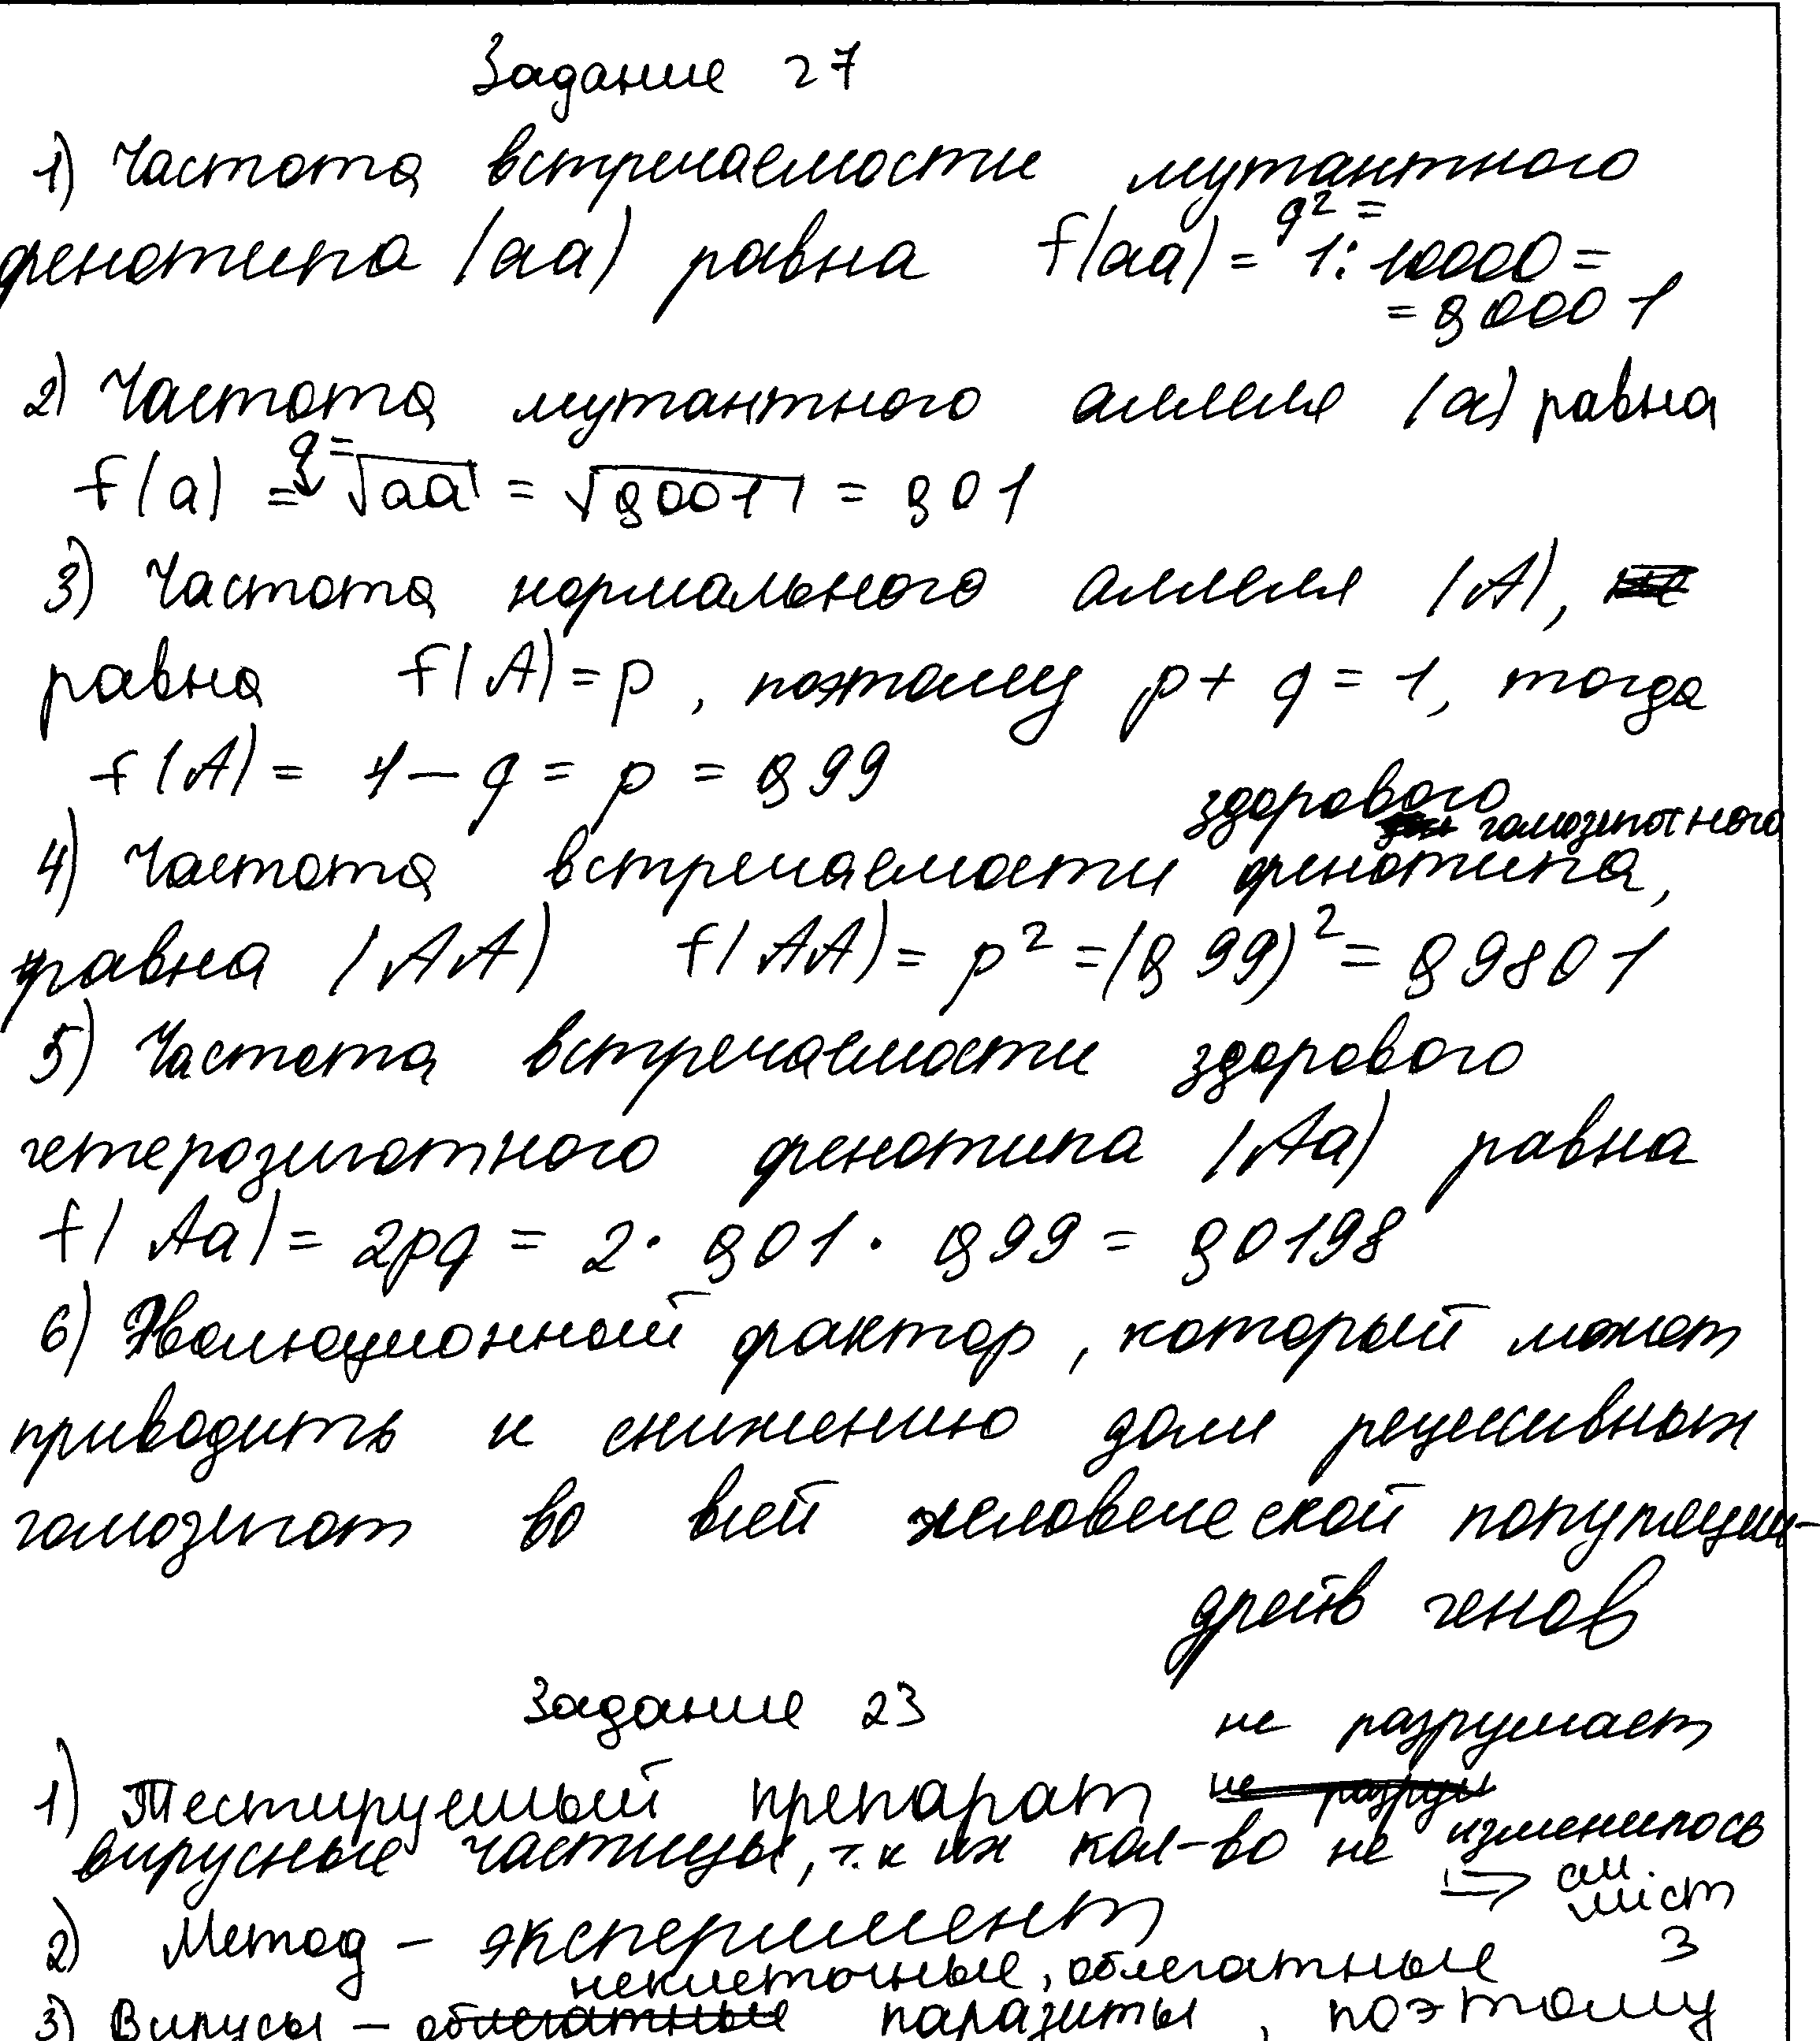 Задание 27
1) Частота встречаемости мутантного
q² =
фенотипа (аа) равна f(аа) = 1:10000 =
= 0,0001
2) Частота мутантного аллеля (а) равна
q =
f(а) = √аа = √0,0001 = 0,01
3) Частота нормального аллеля (А),
равна f(А) = p, поэтому p + q = 1, тогда
f(А) = 1 – q = p = 0,99
здорового
гомозиготного
4) Частота встречаемости фенотипа,
равна (АА) f(АА) = p² = (0,99)² = 0,9801
5) Частота встречаемости здорового
гетерозиготного фенотипа (Аа) равна
f(Аа) = 2pq = 2 · 0,01 · 0,99 = 0,0198
6) Эволюционный фактор, который может
приводить к снижению доли рецессивных
гомозигот во всей человеческой популяции–
дрейф генов
Задание 23
не разрушает
1) Тестируемый препарат не разруш
вирусные частицы, т.к их кол-во не изменилось
=> см.
лист
3
2) Метод – эксперимент
неклеточные, облегатные
3) Вирусы – облегатные паразиты, поэтому